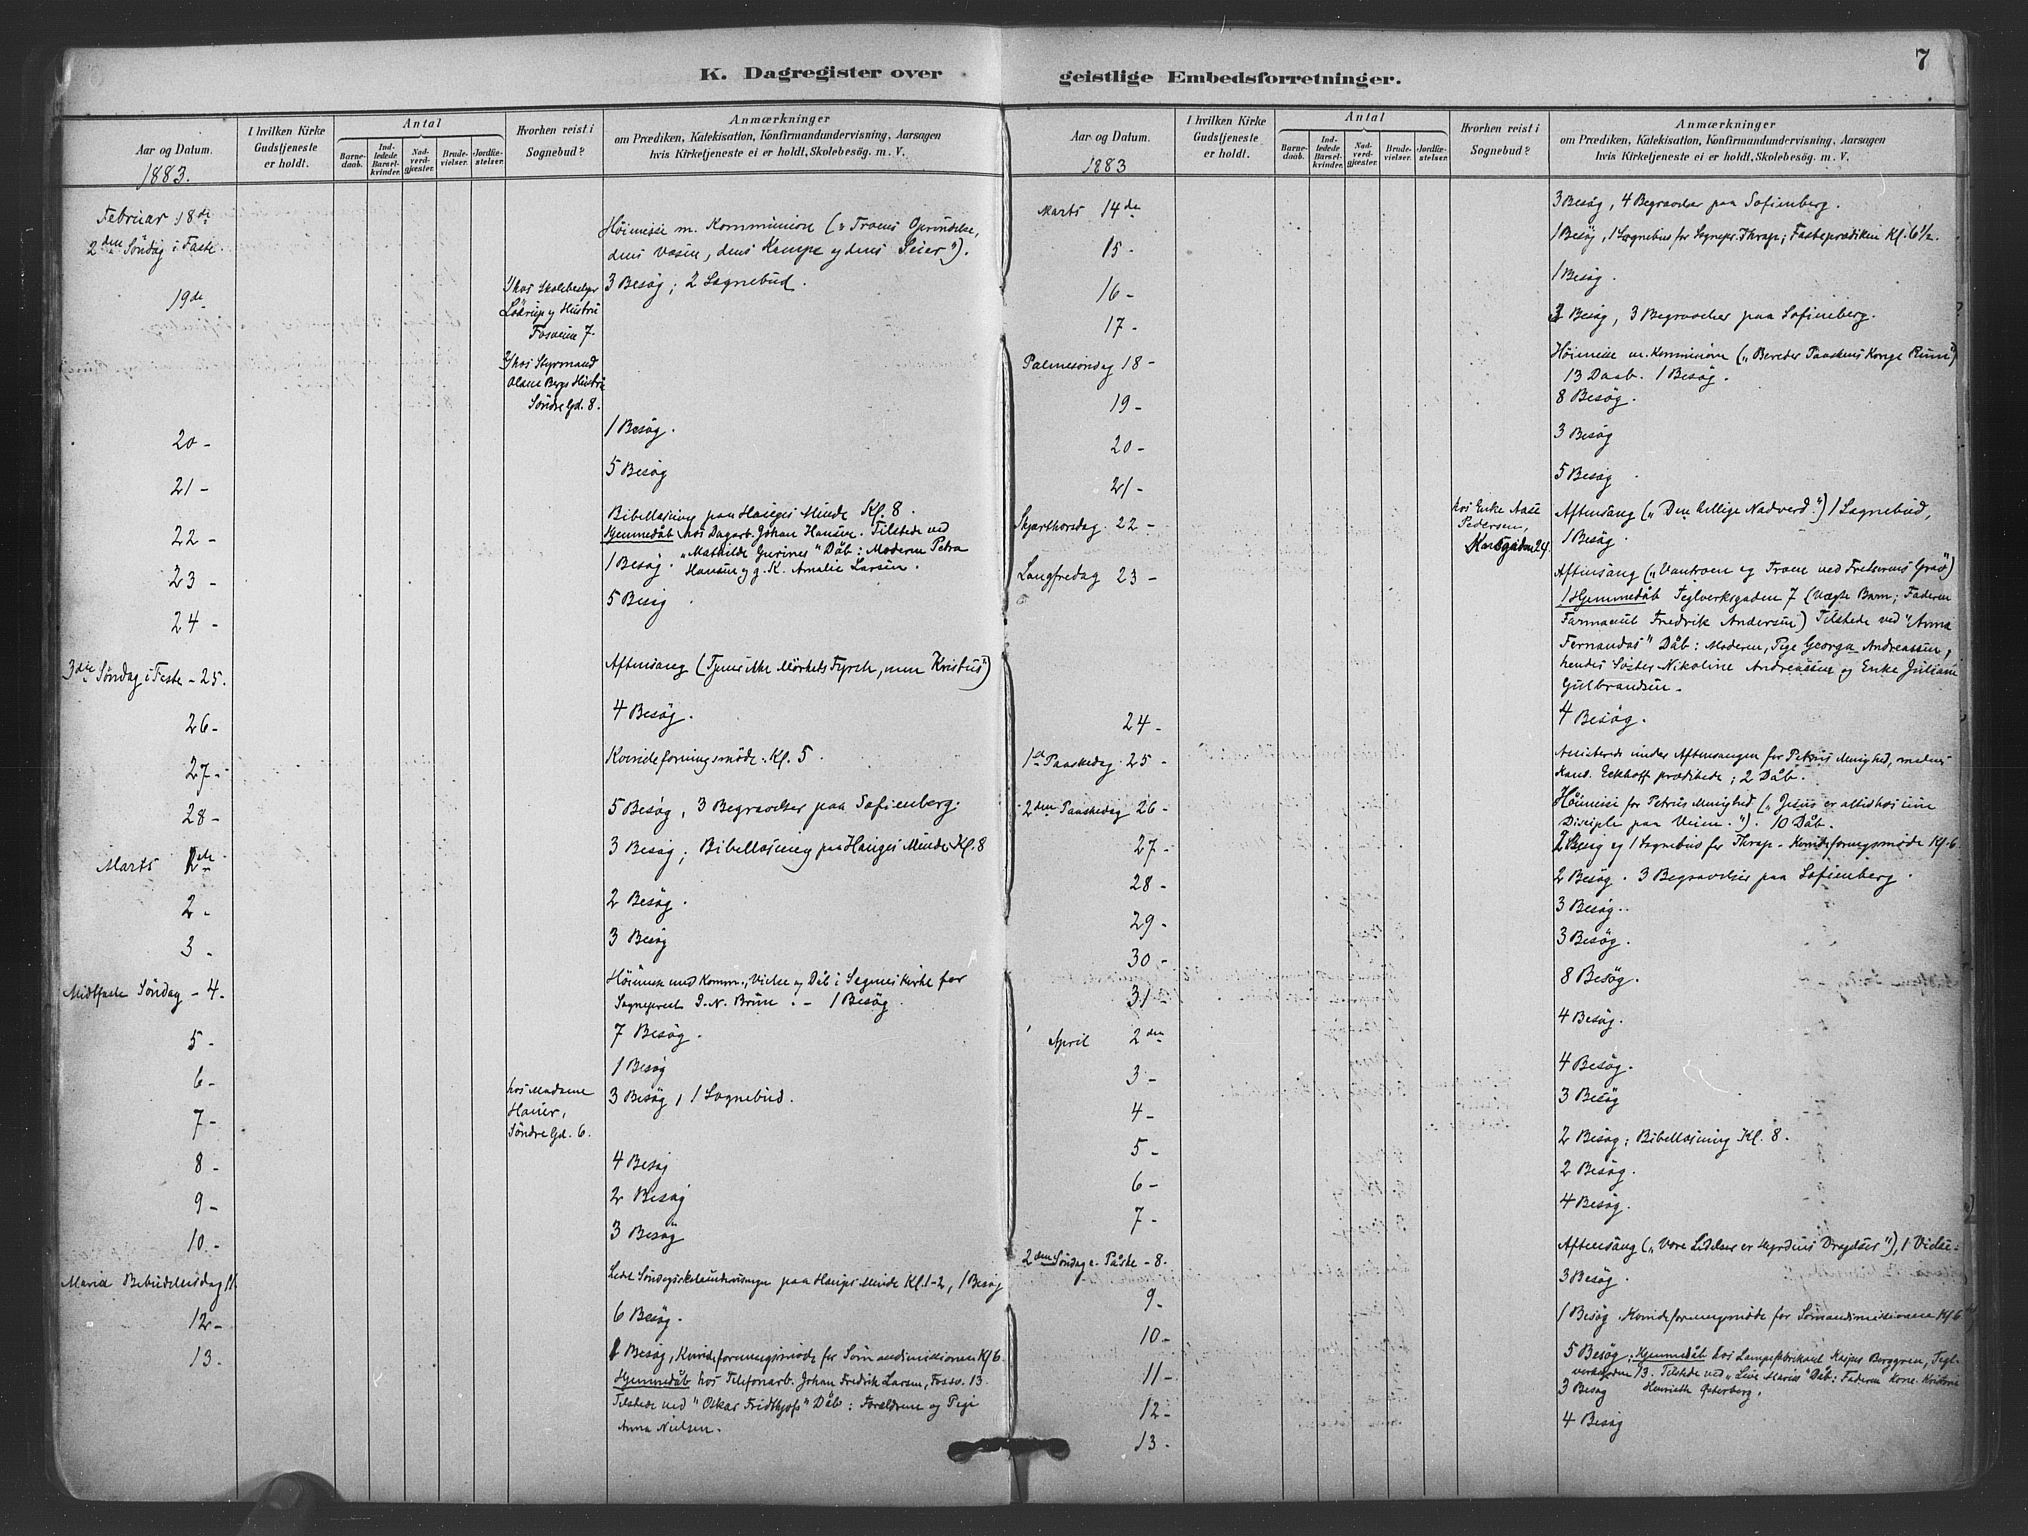 K. Dagregister over
Aar og Datum.
1883.
I hvilken Kirke
Gudstjeneste
er holdt.
Antal
Barne-
daab.
Ind-
ledede
Barsel-
kvinder.
Nad-
verd-
gjæster.
Brude-
vielser.
Jordfæ-
stelser.
Hvorhen reist i
Sognebud?
Anmærkninger
om Prædiken, Katekisation, Konfirmandundervisning, Aarsagen
hvis Kirketjeneste ei er holdt, Skolebesög. m. V.
Februar 18de
2den Søndag i Faste.
Høimesse m. Kommunion („Troens Oprindelse,
dens Væsen, dens Kampe og dens Seier").
19de
1) hos Skolebestyr
Lödrup og Hustru
Fosveien 7.
3 Besøg; 2 Sognebud.
2) hos Styrmand
Olaus Bergs Hustru
Søndre Gd. 8.
20 -
1 Besøg.
21 -
5 Besøg
22 -
Bibellæsning paa Hauges Minde Kl. 8.
Hjemmedåb hos Dagarb. Johan Hansen. Tilstede ved
"Mathilde Gurines" Dåb: Moderen Petra
Hansen og g. K. Amalie Larsen.
23 -
1 Besøg.
24 -
5 Besøg
3die Søndag i Faste - 25.
Aftensang (Tjener ikke Mörkets Fyrste, men Kristus")
26 -
4 Besøg.
27 -
Kvindeforeningsmøde. Kl. 5.
28 -
5 Besøg, 3 Begravelser paa Sofienberg.
Marts 1ste
3 Besøg; Bibellæsning paa Hauges Minde Kl. 8
2 -
2 Besøg.
3 -
3 Besøg
Midtfaste Søndag - 4.
Høimesse med Komm., Vielse og Dåb i Sagenes Kirke for
Sognepræst J. N. Brun. - 1 Besøg.
5 -
7 Besøg.
6 -
1 Besøg
7 -
hos Madame
Hauer,
Søndre Gd. 6.
3 Besøg, 1 Sognebud.
8 -
4 Besøg
9 -
2 Besøg
10 -
3 Besøg
Mariæ Bebudelsesdag 11.
Ledet Søndagsskoleundervisningen paa Hauges Minde Kl. 1-2, 1 Besøg
12 -
6 Besøg.
13.
1 Besøg, Kvindeforeningsmøde for Sømandsmissionen Kl 6.
Hjemmedåb hos Telefonarb. Johan Fredrik Larsen, Fossv. 13.
Tilstede ved "Oskar Fridthjofs" Dåb: Forældrene og Pige
Anna Nielsen.
geistlige Embedsforretninger.
7
Aar og Datum.
1883
I hvilken Kirke
Gudstjeneste
er holdt.
Antal
Barne-
daab.
Ind-
ledede
Barsel-
kvinder.
Nad-
verd-
gjæster.
Brude-
vielser.
Jordfæ-
stelser.
Hvorhen reist i
Sognebud?
Anmærkninger
om Prædiken, Katekisation, Konfirmandundervisning, Aarsagen
hvis Kirketjeneste ei er holdt, Skolebesög. m. V.
Marts 14de
3 Besøg, 4 Begravelser paa Sofienberg.
15 -
1 Besøg, 1 Sognebud for Sognepr. Thrap; Fasteprædiken Kl. 6 1/2.
16 -
1 Besøg.
17 -
3 Besøg, 3 Begravelser paa Sofienberg.
Palmesøndag 18 -
Høimesse m. Kommunion („Bereder Paaskens Konge Rum")
13 Daab. 1 Besøg.
19 -
8 Besøg.
20 -
3 Besøg
21 -
5 Besøg
Skjærthorsdag. 22 -
hos Enke Aase
Pedersen,
24.
Aftensang („Den hellige Nadverd.") 1 Sognebud,
1 Besøg.
Langfredag 23 -
Aftensang („Vantroen og Troen ved Frelserens Grav")
1 Hjemmedåb Teglverksgaden 7 (Uægte Barn; Faderen
Farmaceut Fredrik Andersen) Tilstede ved "Anna
Fernandas" Dåb: Moderen, Pige Georga Andreassen,
hendes Søster Nikoline Andreassen og Enke Juliane
Gulbrandsen.
24 -
4 Besøg.
1ste Paaskedag. 25 -
Assisterede under Aftensangen for Petrus Menighed, medens
Kand. Eckhoff prædikede; 2 Dåb.
2den Paaskedag 26 -
Høimesse for Petrus Menighed („Jesus er altid hos sine
Disciple paa Veien."). 10 Dåb.
27 -
2 Besøg og 1 Sognebud for Thrap - Kvindeforeningsmøde Kl. 6
28 -
2 Besøg. 3 Begravelser paa Sofienberg.
29 -
3 Besøg.
30 -
3 Besøg.
31 -
8 Besøg.
April 2den
4 Besøg.
3 -
4 Besøg.
4 -
3 Besøg
5 -
2 Besøg; Bibellæsning Kl. 8.
6 -
2 Besøg.
7 -
4 Besøg.
2den Søndag e. Påske - 8.
Aftensang („Vore Lidelser er Hyrdens Dragelser"), 1 Vielse.
9 -
3 Besøg.
10 -
1 Besøg. Kvindeforeningsmøde for Sømandsmissionen Kl 6
11 -
5 Besøg; Hjemmedåb hos Lampefabrikant Kasper Berggren, Tegl-
verksgaden 13. Tilstede ved Dåb: Faderen
Henriette Østerberg.
12 -
3 Besøg
13 -
4 Besøg